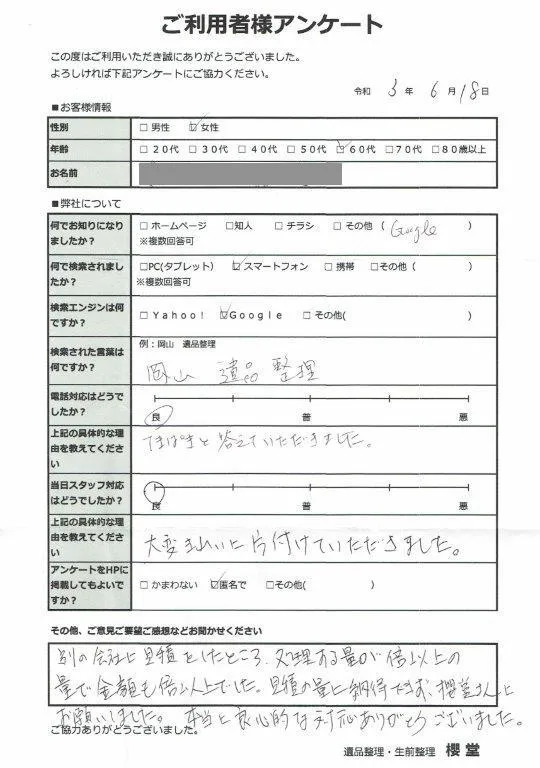 ご利用者様アンケート
この度はご利用いただき誠にありがとうございました。
よろしければ下記アンケートにご協力ください。
令和 3 年 6 月 18 日
■お客様情報
性別 □男性 ☑女性
年齢 □20代 □30代 □40代 □50代 ☑60代 □70代 □80歳以上
お名前
■弊社について
何でお知りになり □ホームページ □知人 □チラシ □その他 ( Google )
ましたか? ※複数回答可
何で検索されまし □PC(タブレット) ☑スマートフォン □携帯 □その他( )
たか? ※複数回答可
検索エンジンは何 □Yahoo! ☑Google □その他( )
ですか?
検索された言葉は 例:岡山 遺品整理
何ですか? 岡山 遺品 整理
電話対応はどうで
したか? 良 普 悪
上記の具体的な理 てきぱきと答えていただきました。
由を教えてくださ
い
当日スタッフ対応
はどうでしたか? 良 普 悪
上記の具体的な理
由を教えてくださ 大変 に片付けていただきました。
い
アンケートをHPに
掲載してもよいで □かまわない ☑匿名で □その他( )
すか?
その他、ご意見ご要望ご感想などお聞かせください
別の会社に見積をしたところ、処理する量が倍以上の
量で金額も倍以上でした。見積の量に納得できず、櫻堂さんに
お願いしました。本当に良心的な対応ありがとうございました。
ご協力ありがとうございました。
遺品整理・生前整理 櫻堂